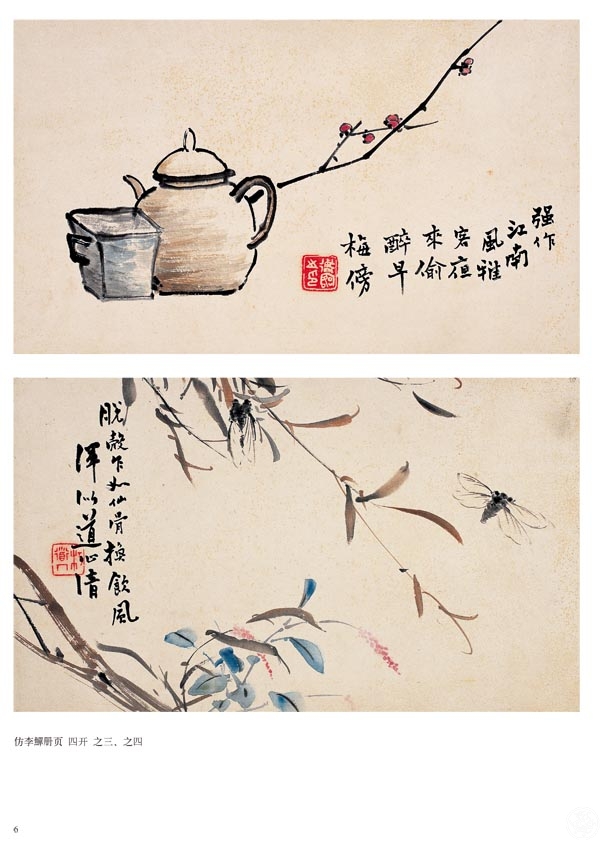 强作
江南
風雅
客亱
來偷
醉早
梅傍
脫殼乍如仙骨換飲風
渾似道心清
仿李鱓册页 四开 之三、之四
6